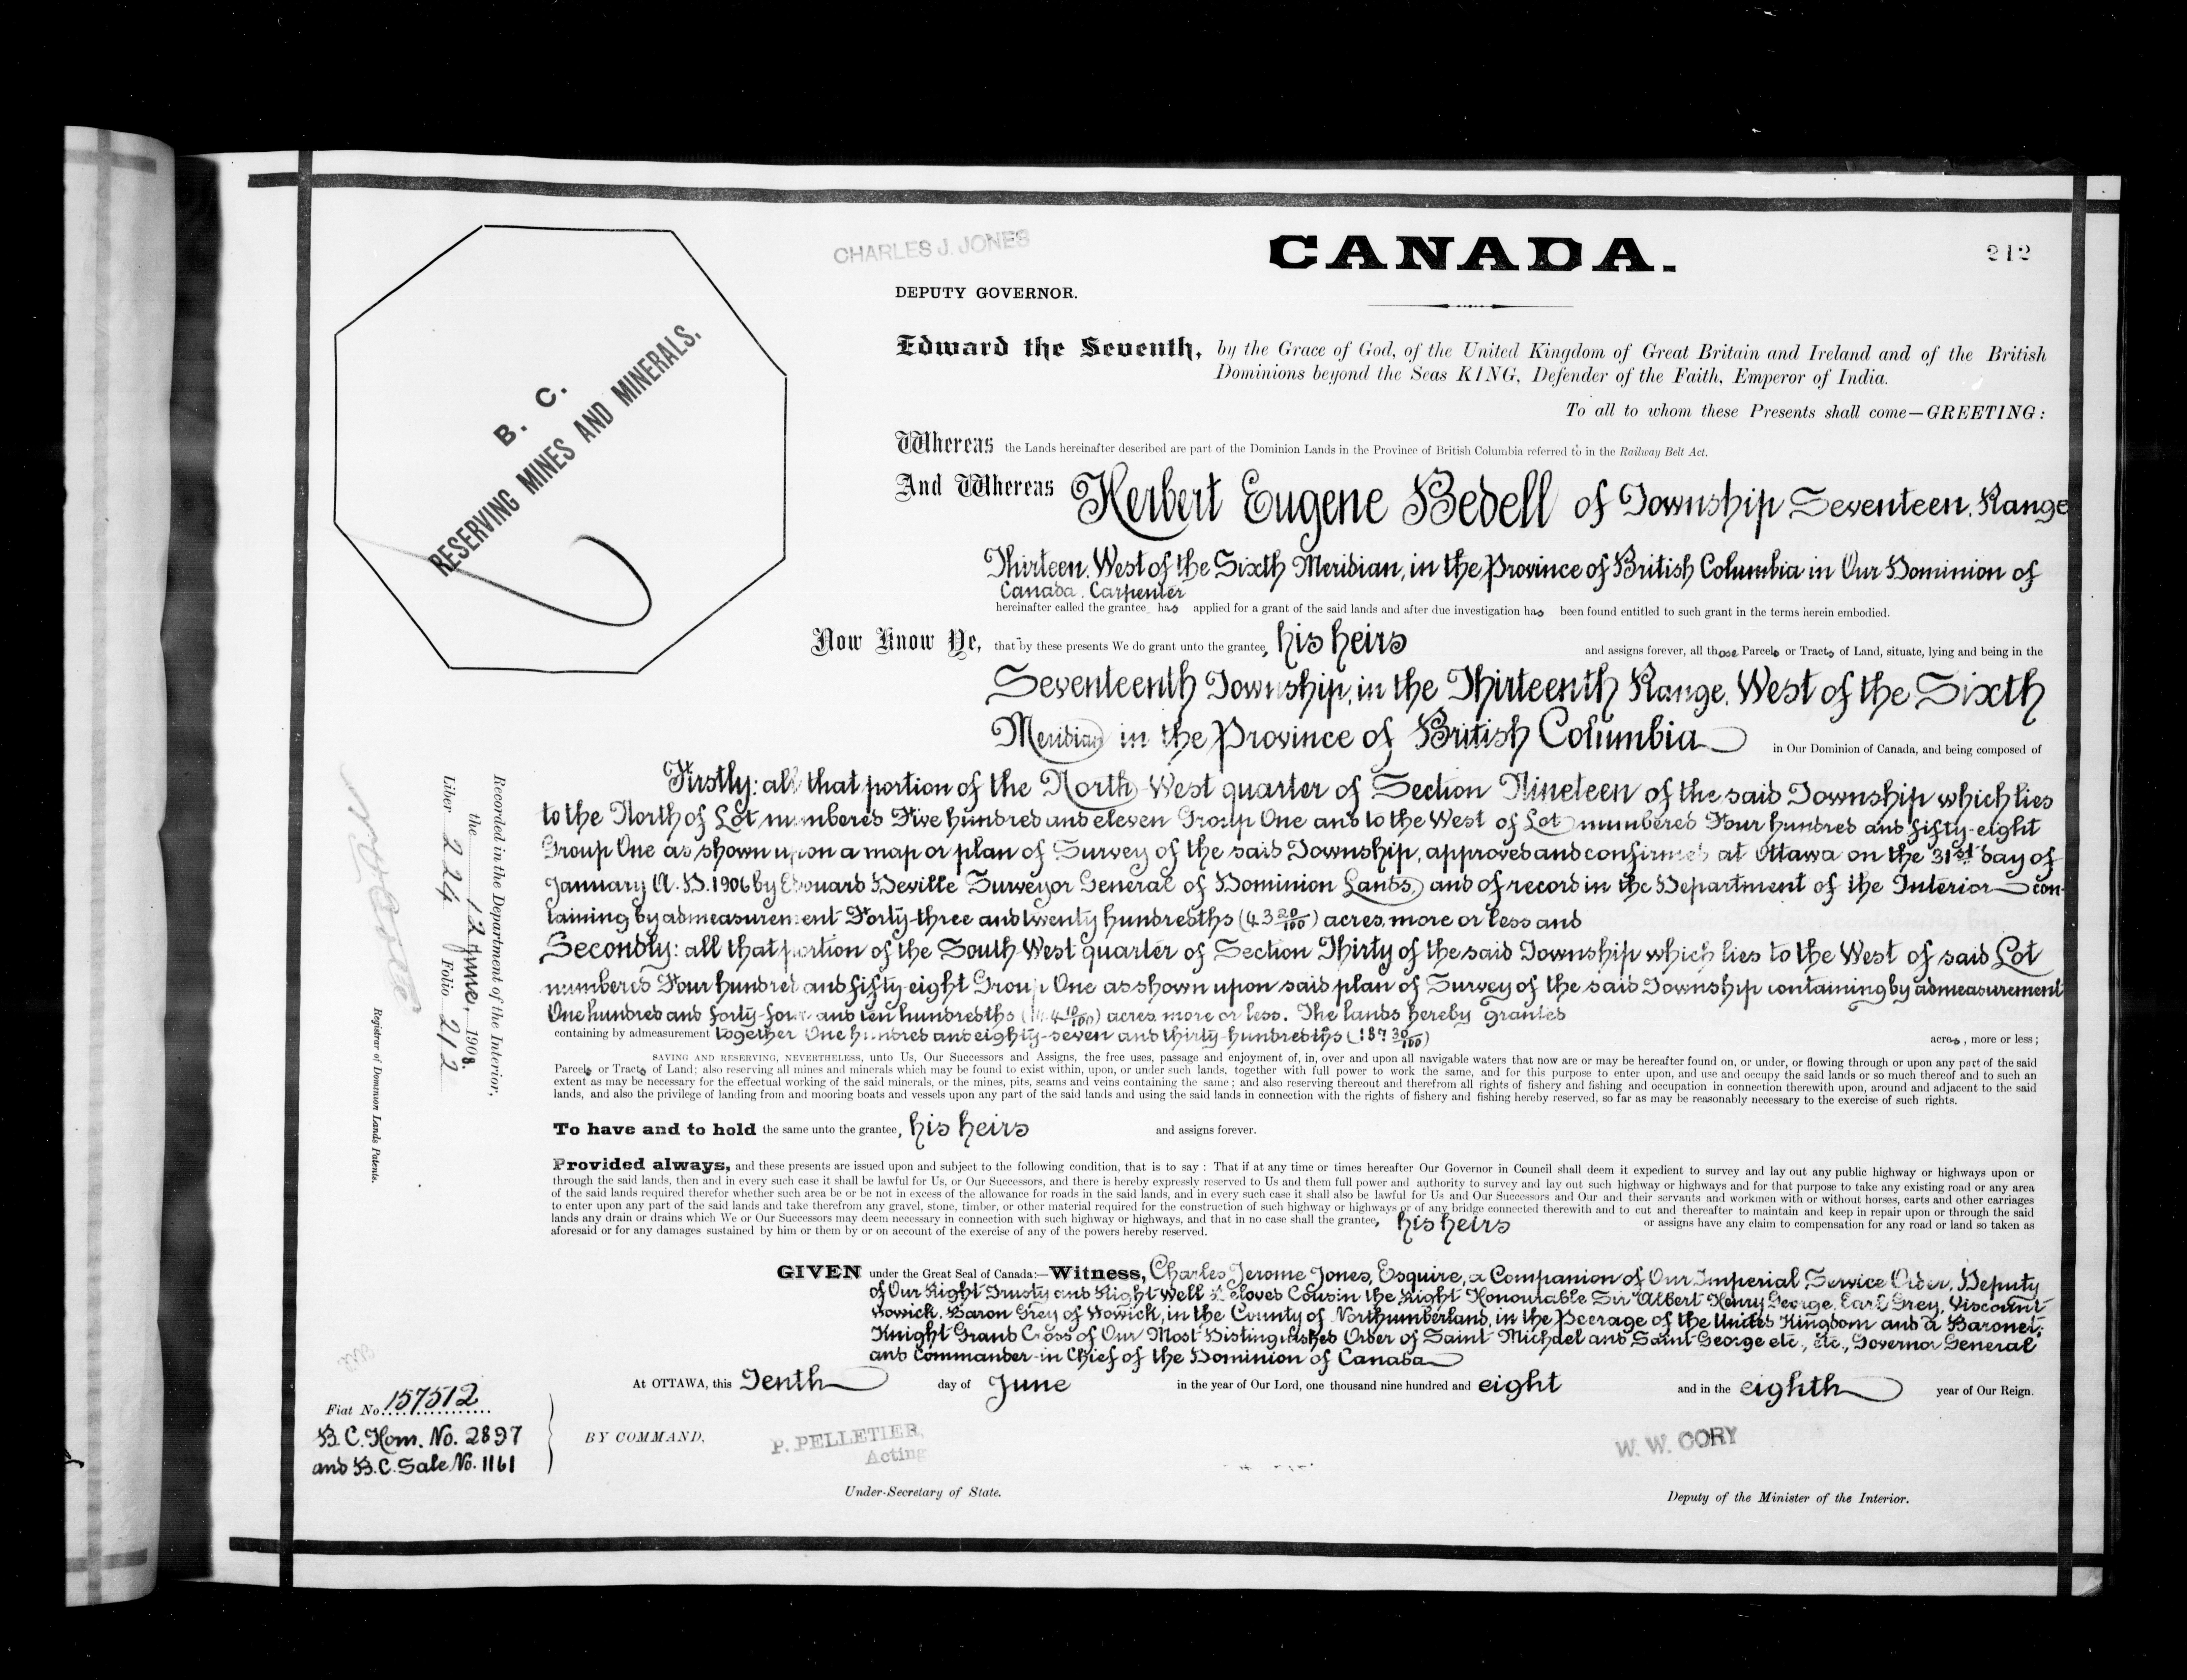 CHARLES J. JONES
CANADA.
212
DEPUTY GOVERNOR.
B. C.
RESERVING MINES AND MINERALS.
Edward the Seventh, by the Grace of God, of the United Kingdom of Great Britain and Ireland and of the British
Dominions beyond the Seas KING, Defender of the Faith, Emperor of India.
To all to whom these Presents shall come—GREETING:
Whereas the Lands hereinafter described are part of the Dominion Lands in the Province of British Columbia referred to in the Railway Belt Act.
And Whereas Herbert Eugene Bedell of Township Seventeen, Range
Thirteen, West of the Sixth Meridian, in the Province of British Columbia in Our Dominion of
Canada, Carpenter
hereinafter called the grantee has applied for a grant of the said lands and after due investigation has been found entitled to such grant in the terms herein embodied.
Now Know Ye, that by these presents We do grant unto the grantee, his heirs and assigns forever, all those Parcels or Tracts of Land, situate, lying and being in the
Seventeenth Township, in the Thirteenth Range, West of the Sixth
Meridian in the Province of British Columbia in Our Dominion of Canada, and being composed of
Firstly: all that portion of the North West quarter of Section Nineteen of the said Township which lies
to the North of Lot numbered Five hundred and eleven Group One and to the West of Lot numbered Four hundred and fifty-eight
Group One as shown upon a map or plan of Survey of the said Township, approved and confirmed at Ottawa on the 31st day of
January A.D. 1906 by Edouard Deville Surveyor General of Dominion Lands, and of record in the Department of the Interior con-
taining by admeasurement Forty-three and twenty hundredths (43 20/100) acres, more or less and
Secondly: all that portion of the South West quarter of Section Thirty of the said Township which lies to the West of said Lot
numbered Four hundred and fifty-eight Group One as shown upon said plan of Survey of the said Township containing by admeasurement
One hundred and forty-four and ten hundredths (144 10/100) acres more or less. The lands hereby granted
containing by admeasurement together One hundred and eighty-seven and thirty-hundredths (187 30/100) acres, more or less;
SAVING AND RESERVING, NEVERTHELESS, unto Us, Our Successors and Assigns, the free uses, passage and enjoyment of, in, over and upon all navigable waters that now are or may be hereafter found on, or under, or flowing through or upon any part of the said
Parcels or Tracts of Land; also reserving all mines and minerals which may be found to exist within, upon, or under such lands, together with full power to work the same, and for this purpose to enter upon, and use and occupy the said lands or so much thereof and to such an
extent as may be necessary for the effectual working of the said minerals, or the mines, pits, seams and veins containing the same; and also reserving thereout and therefrom all rights of fishery and fishing and occupation in connection therewith upon, around and adjacent to the said
lands, and also the privilege of landing from and mooring boats and vessels upon any part of the said lands and using the said lands in connection with the rights of fishery and fishing hereby reserved, so far as may be reasonably necessary to the exercise of such rights.
To have and to hold the same unto the grantee, his heirs and assigns forever.
Provided always, and these presents are issued upon and subject to the following condition, that is to say: That if at any time or times hereafter Our Governor in Council shall deem it expedient to survey and lay out any public highway or highways upon or
through the said lands, then and in every such case it shall be lawful for Us, or Our Successors, and there is hereby expressly reserved to Us and them full power and authority to survey and lay out such highway or highways and for that purpose to take any existing road or any area
of the said lands required therefor whether such area be or be not in excess of the allowance for roads in the said lands, and in every such case it shall also be lawful for Us and Our Successors and Our and their servants and workmen with or without horses, carts and other carriages
to enter upon any part of the said lands and take therefrom any gravel, stone, timber, or other material required for the construction of such highway or highways or of any bridge connected therewith and to cut and thereafter to maintain and keep in repair upon or through the said
lands any drain or drains which We or Our Successors may deem necessary in connection with such highway or highways, and that in no case shall the grantee, his heirs or assigns have any claim to compensation for any road or land so taken as
aforesaid or for any damages sustained by him or them by or on account of the exercise of any of the powers hereby reserved.
GIVEN under the Great Seal of Canada:—Witness, Charles Jerome Jones, Esquire, a Companion of Our Imperial Service Order, Deputy
of Our Right Trusty and Right Well Beloved Cousin the Right Honourable Sir Albert Henry George, Earl Grey, Viscount
Howick, Baron Grey of Howick, in the County of Northumberland, in the Peerage of the United Kingdom and a Baronet;
Knight Grand Cross of Our Most Distinguished Order of Saint Michael and Saint George etc., etc., Governor General
and Commander-in-Chief of the Dominion of Canada
At OTTAWA, this Tenth day of June in the year of Our Lord, one thousand nine hundred and eight and in the eighth year of Our Reign.
Fiat No. 157512
B.C. Hom. No. 2897
and B.C. Sale No. 1161
BY COMMAND,
P. PELLETIER,
Acting
Under-Secretary of State.
W. W. CORY
Deputy of the Minister of the Interior.
Recorded in the Department of the Interior,
the 12 June, 1908.
Liber 224 Folio 212
Registrar of Dominion Lands Patents.